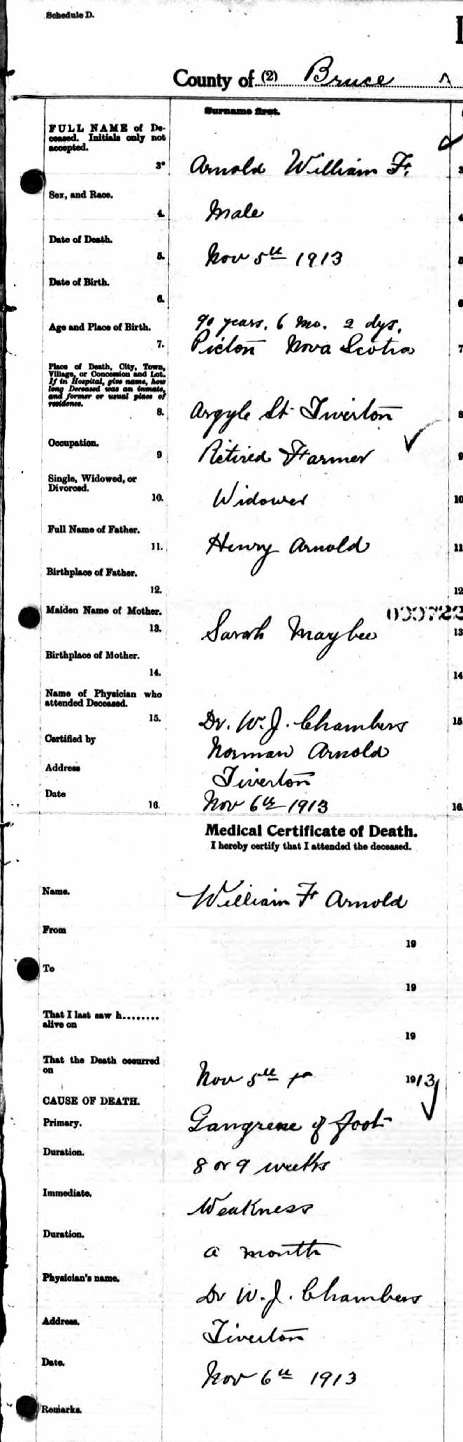 Schedule D.
County of (2) Bruce
Surname first.
FULL NAME of De-
ceased. Initials only not
accepted.
3. Arnold William F.
Sex, and Race.
4. Male
Date of Death.
5. Nov 5th 1913
Date of Birth.
6.
Age and Place of Birth.
90 years, 6 mo. 2 dys,
7. Picton Nova Scotia
Place of Death, City, Town,
Village, or Concession and Lot.
If in Hospital, give name, how
long Deceased was an inmate,
and former or usual place of
residence.
8. Argyle St Tiverton
Occupation.
9 Retired Farmer
Single, Widowed, or
Divorced.
10. Widower
Full Name of Father.
11. Henry Arnold
Birthplace of Father.
12.
Maiden Name of Mother.
13. Sarah Maybee
Birthplace of Mother.
14.
Name of Physician who
attended Deceased.
15. Dr. W. J. Chambers
Certified by Norman Arnold
Address Tiverton
Date
16. Nov 6th 1913
Medical Certificate of Death.
I hereby certify that I attended the deceased.
Name. William F Arnold
From 19
To 19
That I last saw h........
alive on 19
That the Death occurred
on Nov 5th 1913
CAUSE OF DEATH.
Primary. Gangrene of foot
Duration. 8 or 9 weeks
Immediate. Weakness
Duration. a month
Physician's name. Dr W. J. Chambers
Address. Tiverton
Date. Nov 6th 1913
Remarks.